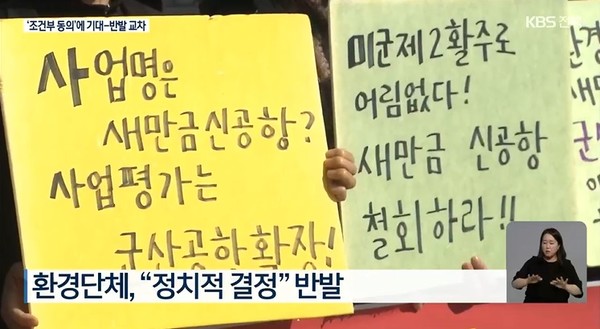 '조건부 동의'에 기대-반발 교차
KBS 전주
사업명은
새만금신공항?
사업평가는
군산공항확장!
미군제2활주로
어림없다!
새만금 신공항
철회하라!!
환경단체, “정치적 결정” 반발